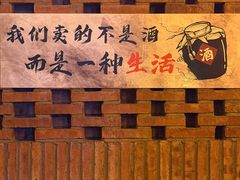 我们卖的不是酒
而是一种生活
酒